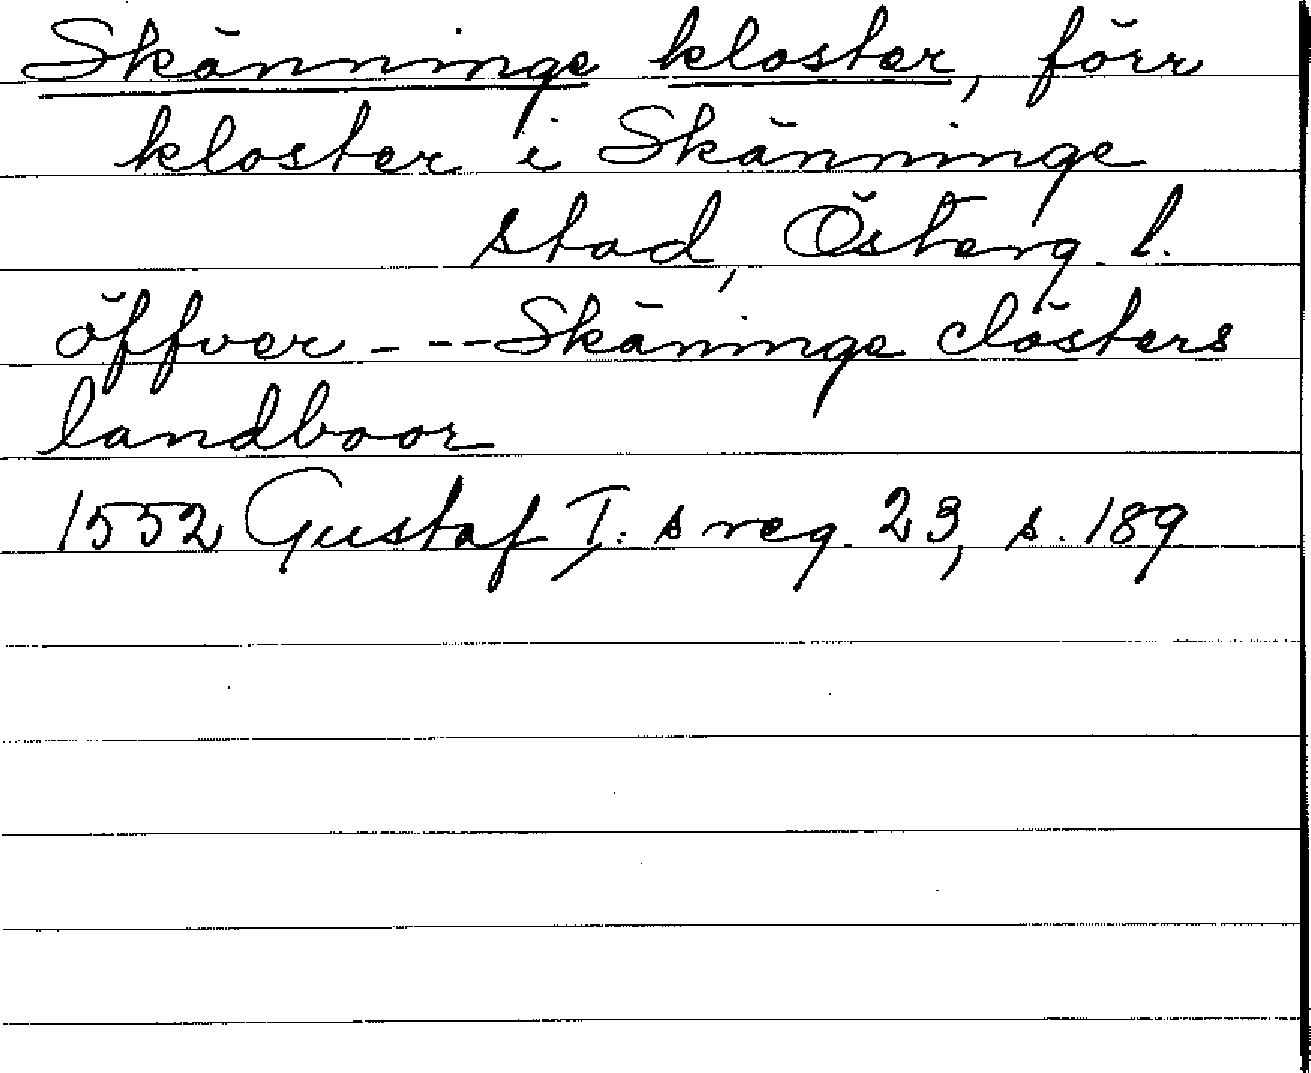 Skänninge kloster, förr
kloster i Skänninge
stad, Österg. l.
öffver - - - Skäninge clösters
landboor
1552 Gustaf I: s reg. 23, s. 189